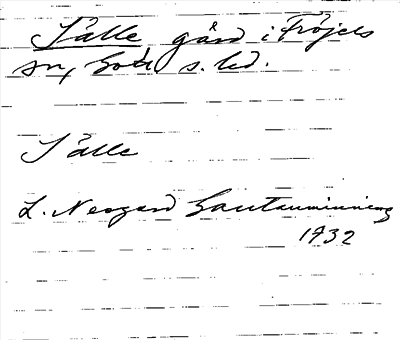 Sälle gård i Fröjels
sn, Gotl s. hd.
Sälle
L. Neogard Gautauminning
1932